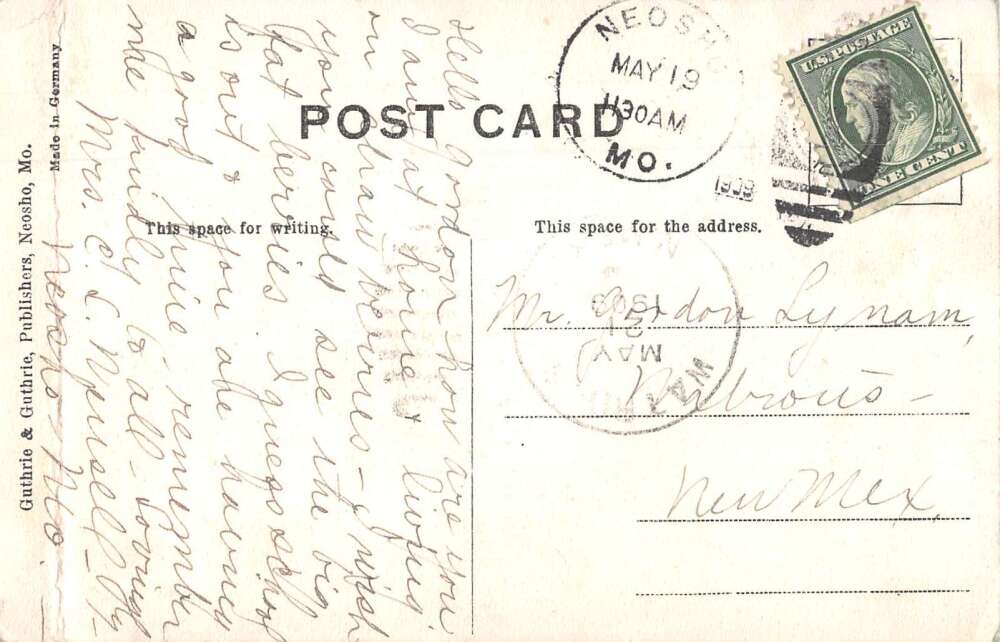 POST CARD
NEOSHO
MAY 19
1130AM
MO.
1909
U.S. POSTAGE
ONE CENT
This space for writing.
This space for the address.
Hello Gordon how are you
I am at home & living
on straw berries - I wish
you could see the big
fat berries. I guess school
is out & you are having
a good time remember
me kindly to all - Loving
Mrs. C. L.
Neosho - Mo
Mr. Gordon Lynam,
New Mex.
MAY
21
1909
Guthrie & Guthrie, Publishers, Neosho, Mo.
Made in Germany